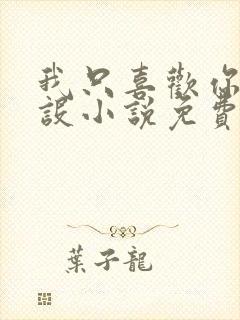 我只喜歡你
設小說免費
葉子龍